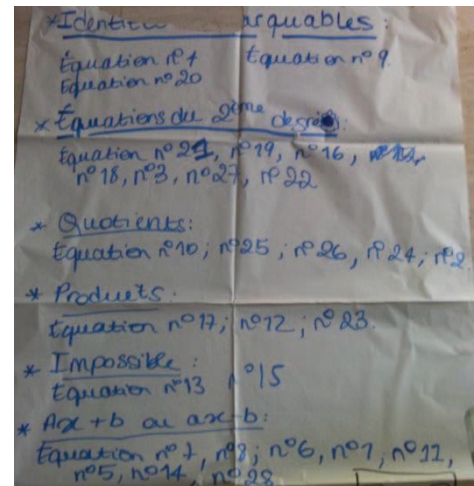 *Identit arquables:
Équation n°4 Équation n°9.
Équation n°20
* Équations du 2ème degré:
Équation n°21, n°19, n°16,
n°18, n°3, n°27, n°22
* Quotients:
Équation n°10; n°25; n°26, n°24; n°2
* Produits:
Équation n°17; n°12; n°23.
* Impossible:
Équation n°13 n°15
* Ax +b ou ax-b:
Équation n°7, n°8; n°6, n°1, n°11,
n°5, n°14, n°28